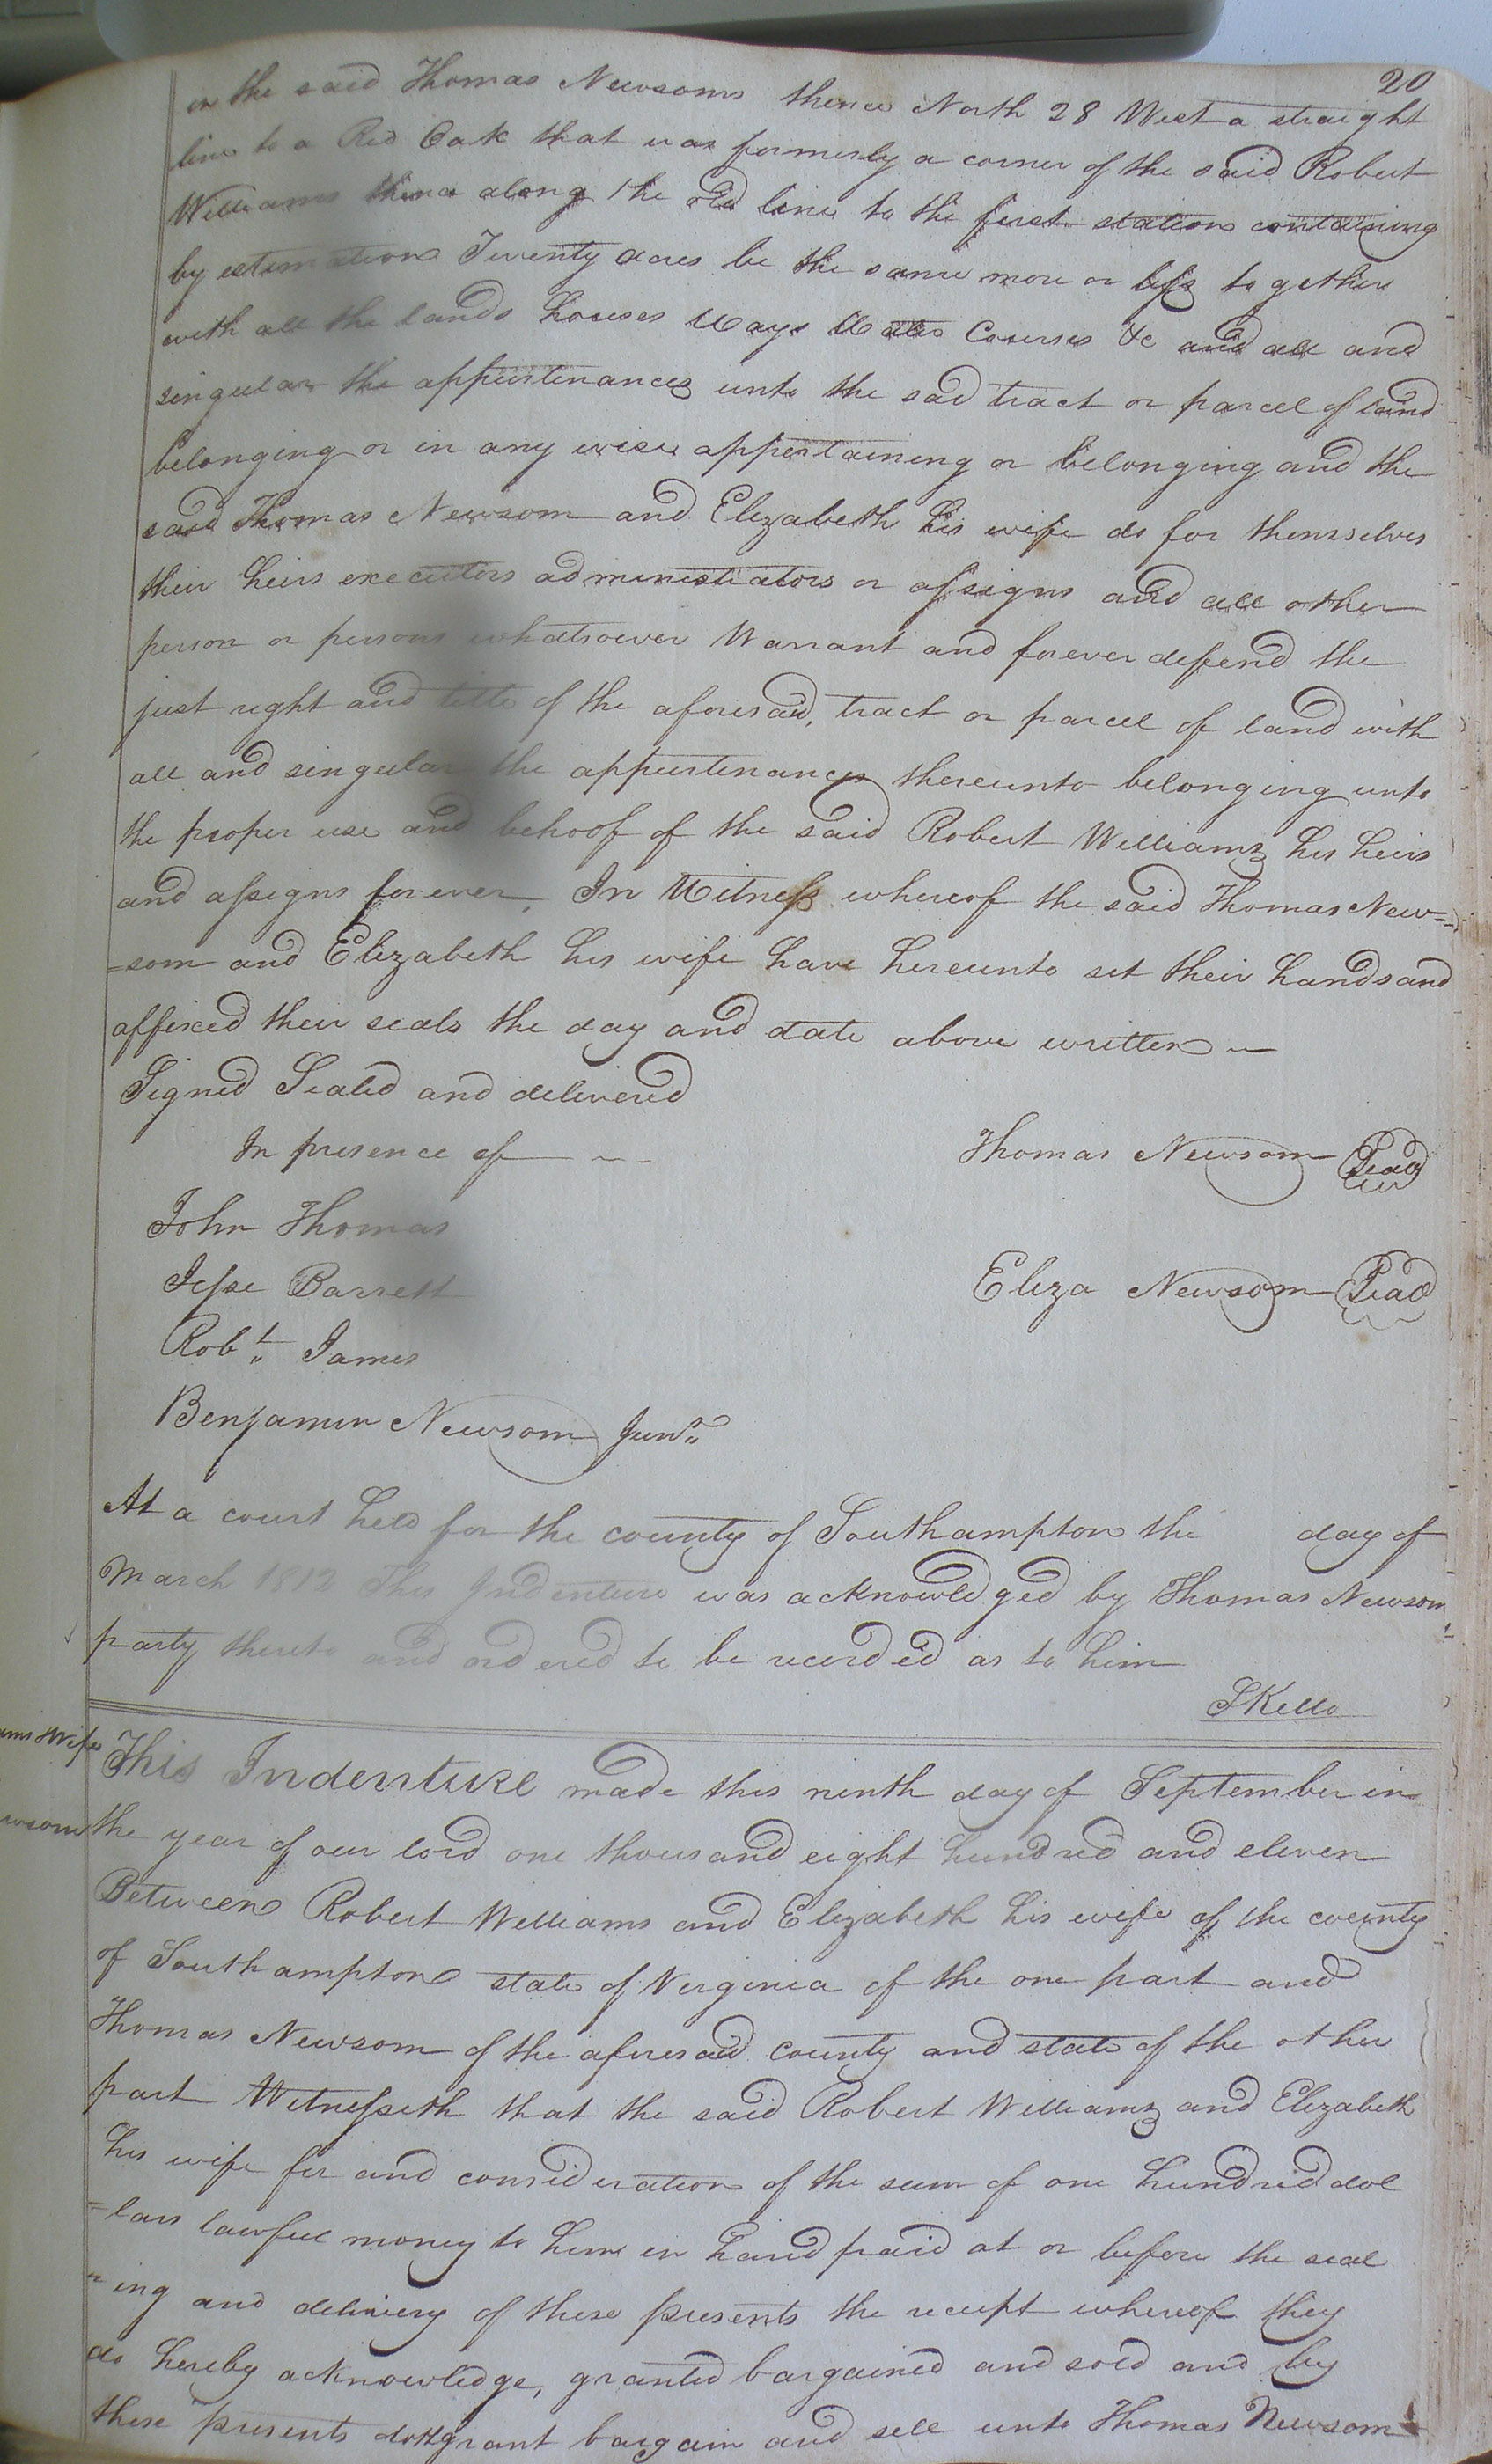 20
in the said Thomas Newsoms thence North 28 West a straight
line to a Red Oak that was formerly a corner of the said Robert
Williams thence along the old line to the first station containing
by estimation Twenty acres be the same more or less together
with all the lands houses Ways Water Courses &c and all and
singular the appurtenances unto the said tract or parcel of land
belonging or in any wise appertaining or belonging and the
said Thomas Newsom and Elizabeth his wife do for themselves
their heirs executors administrators or assigns and all other
person or persons whatsoever Warrant and forever defend the
just right and title of the aforesaid, tract or parcel of land with
all and singular the appurtenances thereunto belonging unto
the proper use and behoof of the said Robert Williams his heirs
and assigns forever. In Witness whereof the said Thomas New=
=som and Elizabeth his wife have hereunto set their hands and
affixed their seals the day and date above written
Signed Sealed and delivered
In presence of
Thomas Newsom Seal
John Thomas
Jesse Barrett
Eliza Newsom Seal
Robt. James
Benjamin Newsom Junr.
At a court held for the county of Southampton the day of
March 1812 This Indenture was acknowledged by Thomas Newsom
party thereto and ordered to be recorded as to him
SKello
ams Wife
This Indenture made this ninth day of September in
wsom
the year of our lord one thousand eight hundred and eleven
Between Robert Williams and Elizabeth his wife of the county
of Southampton state of Virginia of the one part and
Thomas Newsom of the aforesaid county and state of the other
part Witnesseth that the said Robert Williams and Elizabeth
his wife for and consideration of the sum of one hundred dol
=lars lawfull money to him in hand paid at or before the seal
=ing and delivery of these presents the receipt whereof they
do hereby acknowledge, granted bargained and sold and by
these presents doth grant bargain and sell unto Thomas Newsom